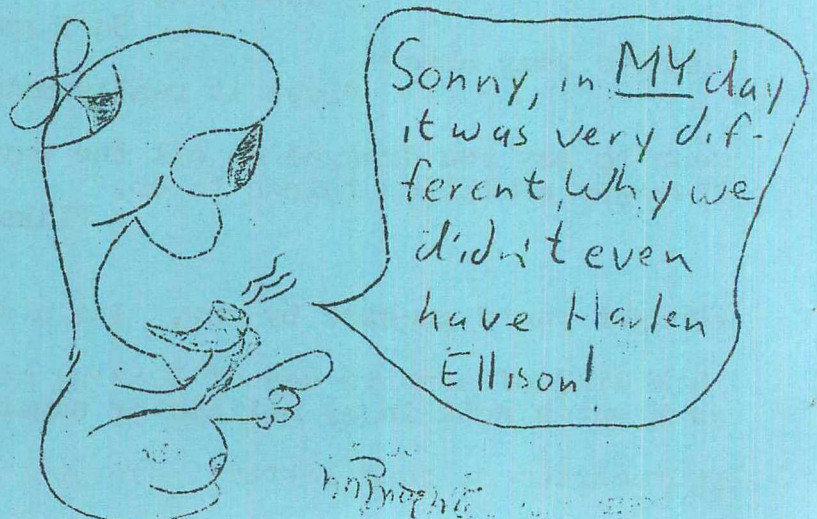 Sonny, in MY day
it was very dif-
ferent, Why we
didn't even
have Harlen
Ellison!